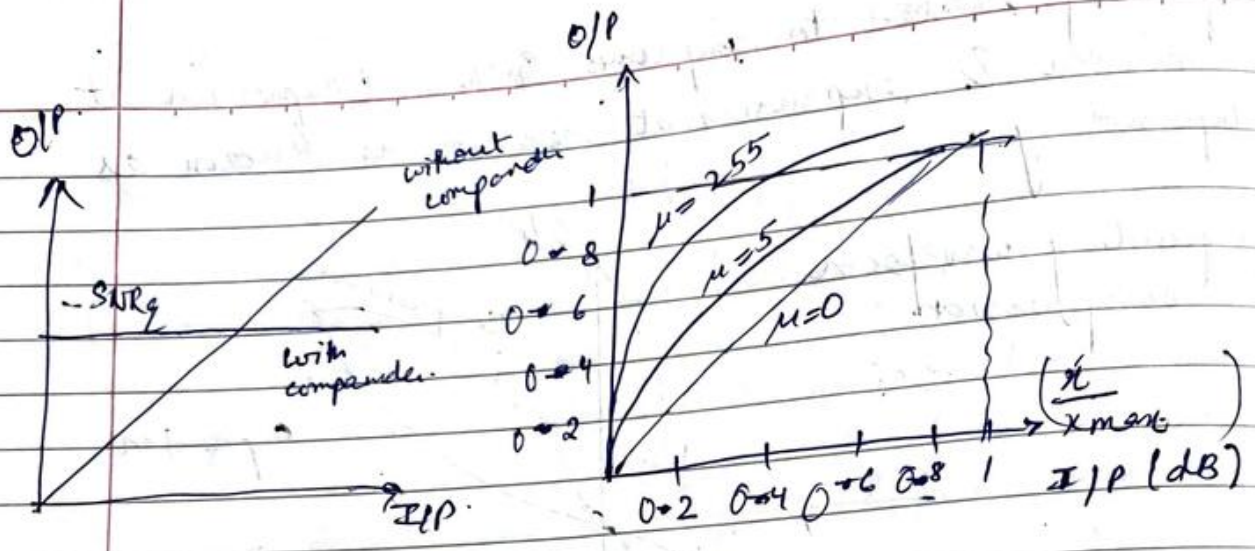 O/P
without
compander
- SNRq
with
compander.
I/P.
O/P
1
0.8
0.6
0.4
0.2
μ = 255
μ = 5
μ=0
1
0.2 0.4 0.6 0.8 1
(x / xmax)
I/P (dB)